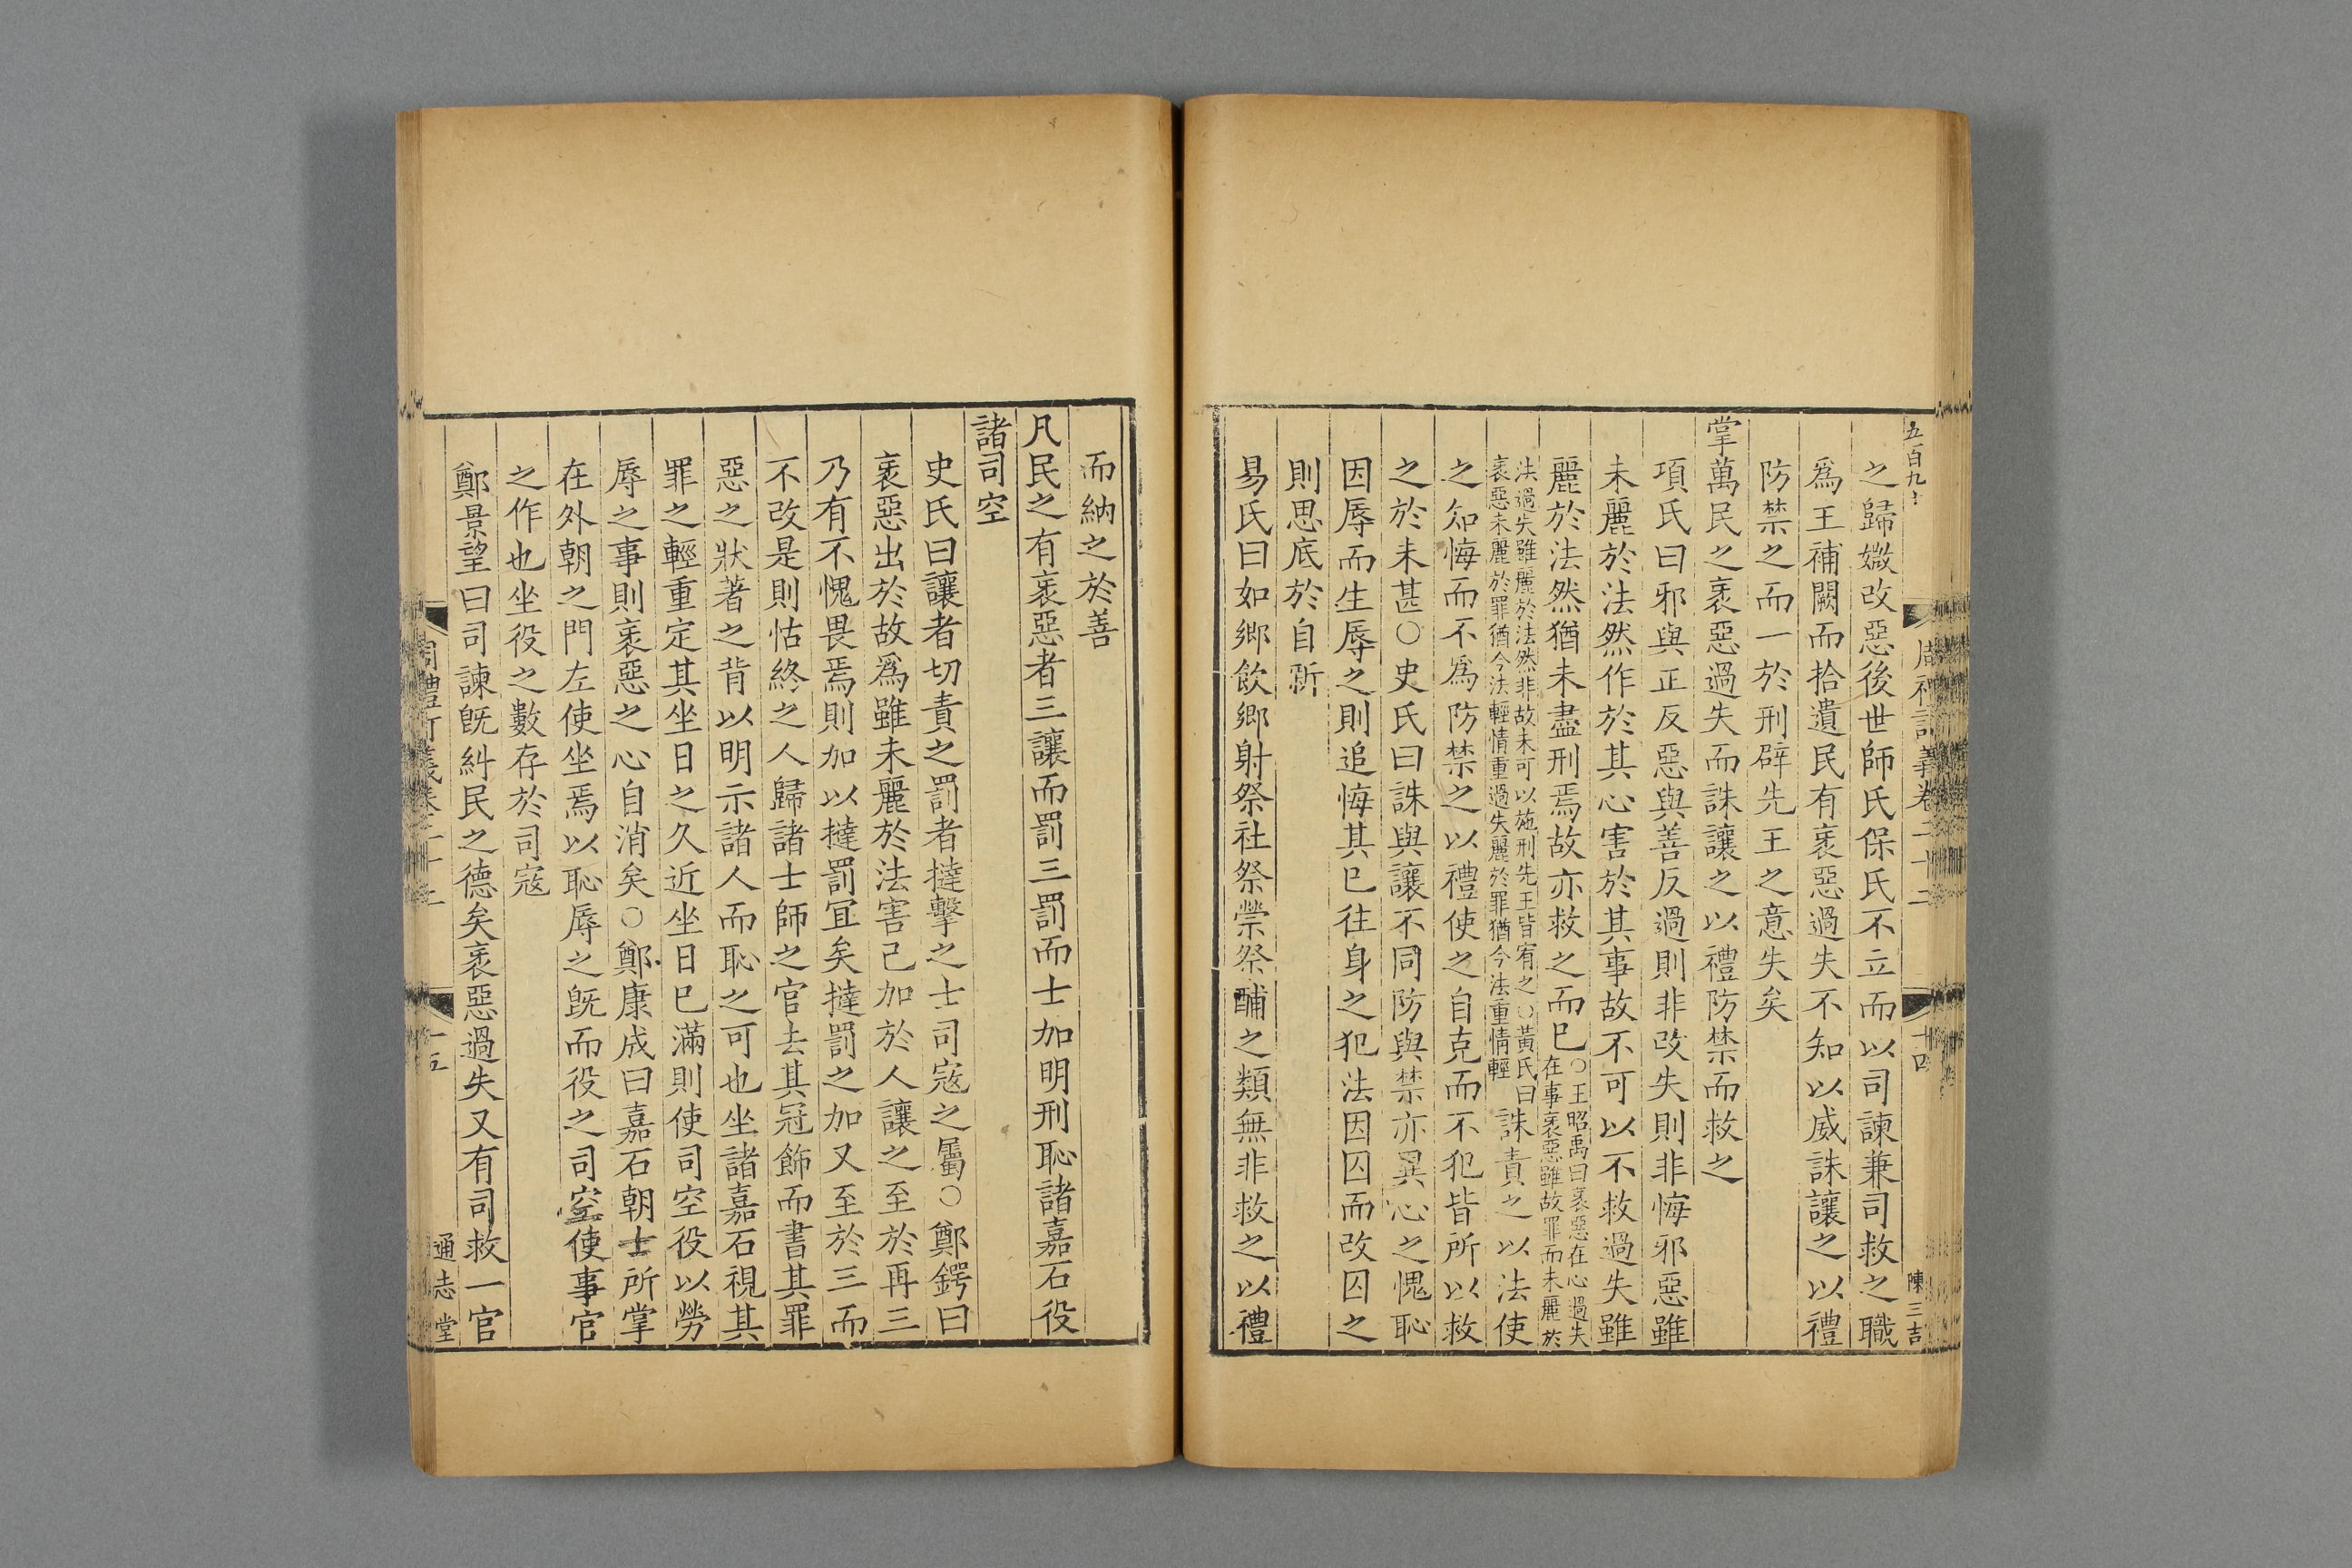 五百九十
陳三吉
之歸媺改惡後世師氏保氏不立而以司諫兼司救之職
爲王補闕而拾遺民有衺惡過失不知以威誅讓之以禮
防禁之而一於刑辟先王之意失矣
掌萬民之衺惡過失而誅讓之以禮防禁而救之
項氏曰邪與正反惡與善反過則非改失則非悔邪惡雖
未麗於法然作於其心害於其事故不可以不救過失雖
麗於法然猶未盡刑焉故亦救之而已○王昭禹曰衺惡在心過失在事衺惡雖故罪而未麗於
法過失雖麗於法然非故未可以施刑先王皆宥之○黃氏曰衺惡未麗於罪猶今法輕情重過失麗於罪猶今法重情輕誅責之以法使
之知悔而不爲防禁之以禮使之自克而不犯皆所以救
之於未甚○史氏曰誅與讓不同防與禁亦異心之愧恥
因辱而生辱之則追悔其已往身之犯法因囚而改囚之
則思底於自新
易氏曰如鄉飲鄉射祭社祭禜祭酺之類無非救之以禮
而納之於善
凡民之有衺惡者三讓而罰三罰而士加明刑恥諸嘉石役
諸司空
史氏曰讓者切責之罰者撻擊之士司寇之屬○鄭鍔曰
衺惡出於故爲雖未麗於法害已加於人讓之至於再三
乃有不愧畏焉則加以撻罰宜矣撻罰之加又至於三而
不改是則怙終之人歸諸士師之官去其冠飾而書其罪
惡之狀著之背以明示諸人而恥之可也坐諸嘉石視其
罪之輕重定其坐日之久近坐日已滿則使司空役以勞
辱之事則衺惡之心自消矣○鄭康成曰嘉石朝士所掌
在外朝之門左使坐焉以恥辱之旣而役之司空使事官
之作也坐役之數存於司寇
鄭景望曰司諫旣糾民之德矣衺惡過失又有司救一官
通志堂